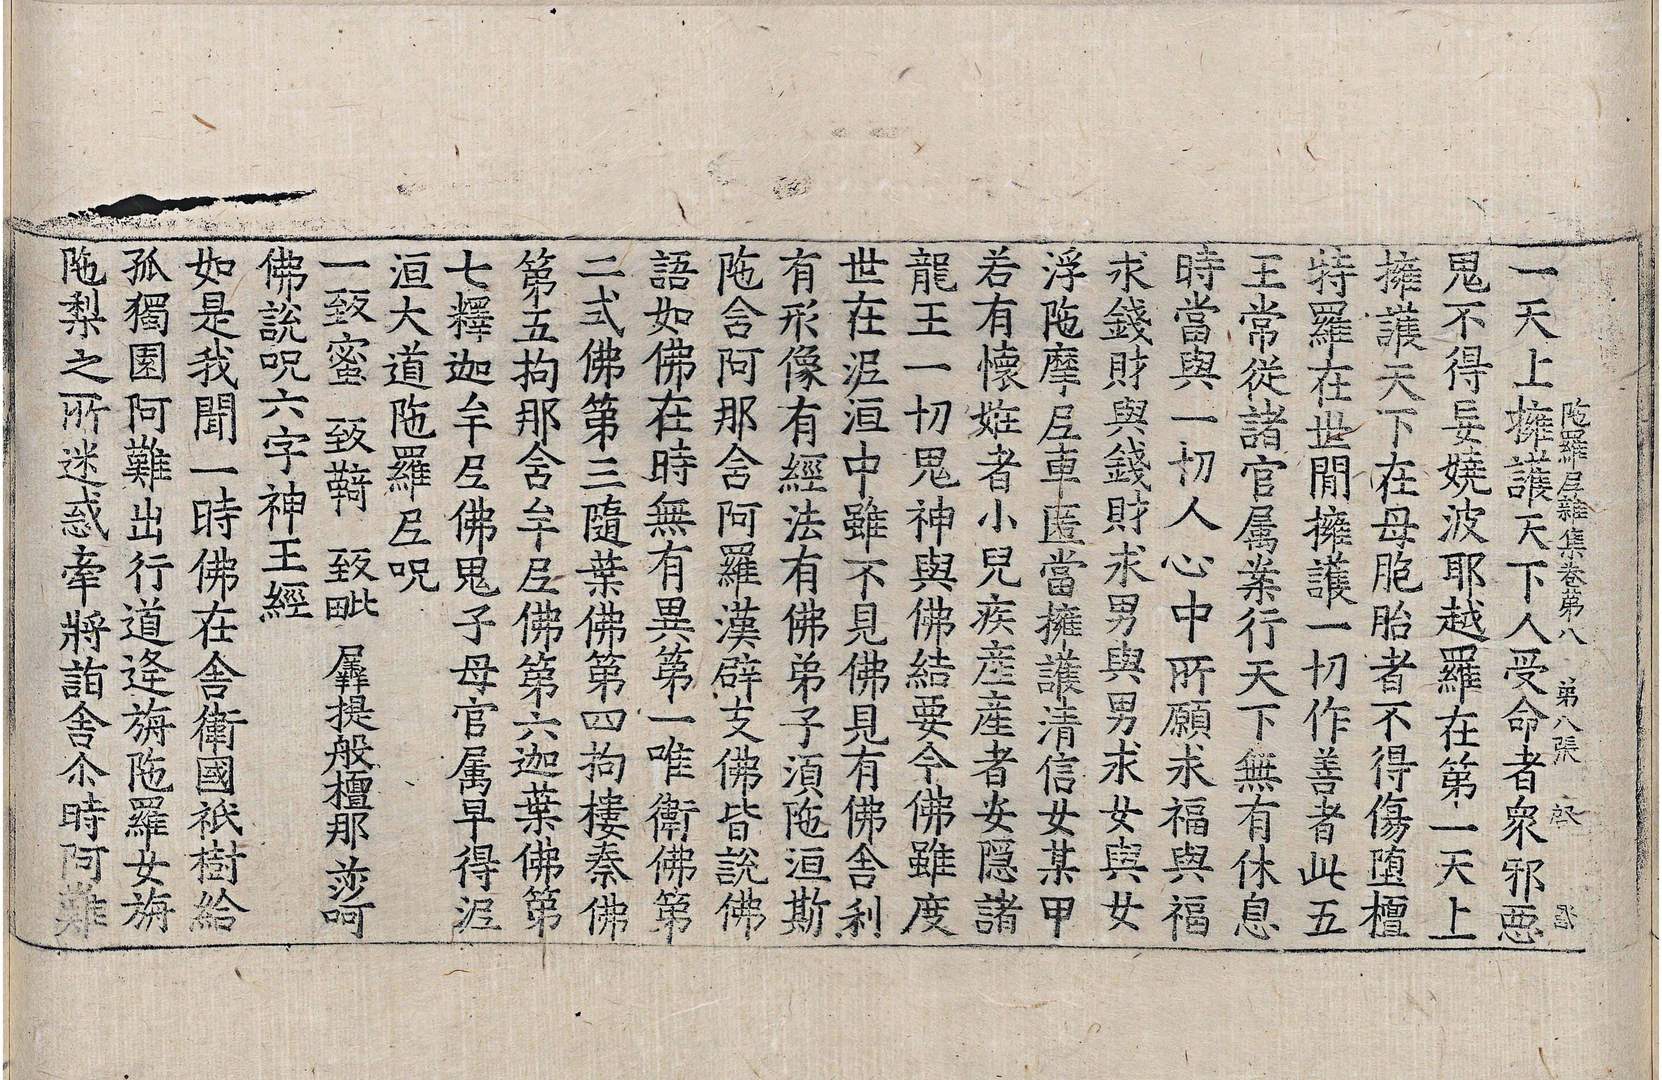 一天上擁護天下人受命者衆邪惡
陁羅尼雜集卷第八　第八張
鬼不得妄嬈波耶越羅在第一天上
擁護天下在母胞胎者不得傷墮檀
特羅在世閒擁護一切作善者此五
王常從諸官属業行天下無有休息
時當與一切人心中所願求福與福
求錢財與錢財求男與男求女與女
浮陁摩尼車匿當擁護清信女某甲
若有懷姙者小兒疾産産者安隱諸
龍王一切鬼神與佛結要令佛雖度
世在泥洹中雖不見佛見有佛舎利
有形像有經法有佛弟子湏陁洹斯
陁舍阿那舍阿羅漢辟支佛皆說佛
語如佛在時無有異第一唯衛佛第
二式佛第三隨葉佛第四拘樓秦佛
第五拘那舍牟尼佛第六迦葉佛第
七釋迦牟尼佛鬼子母官属早得泥
洹大道陁羅尼呪
一致蜜　致䩭　致毗　羼提般檀那莎呵
佛說呪六字神王經
如是我聞一時佛在舍衛國祇樹給
孤獨園阿難出行道逢旃陁羅女旃
陁梨之所迷惑牽將詣舍尒時阿難